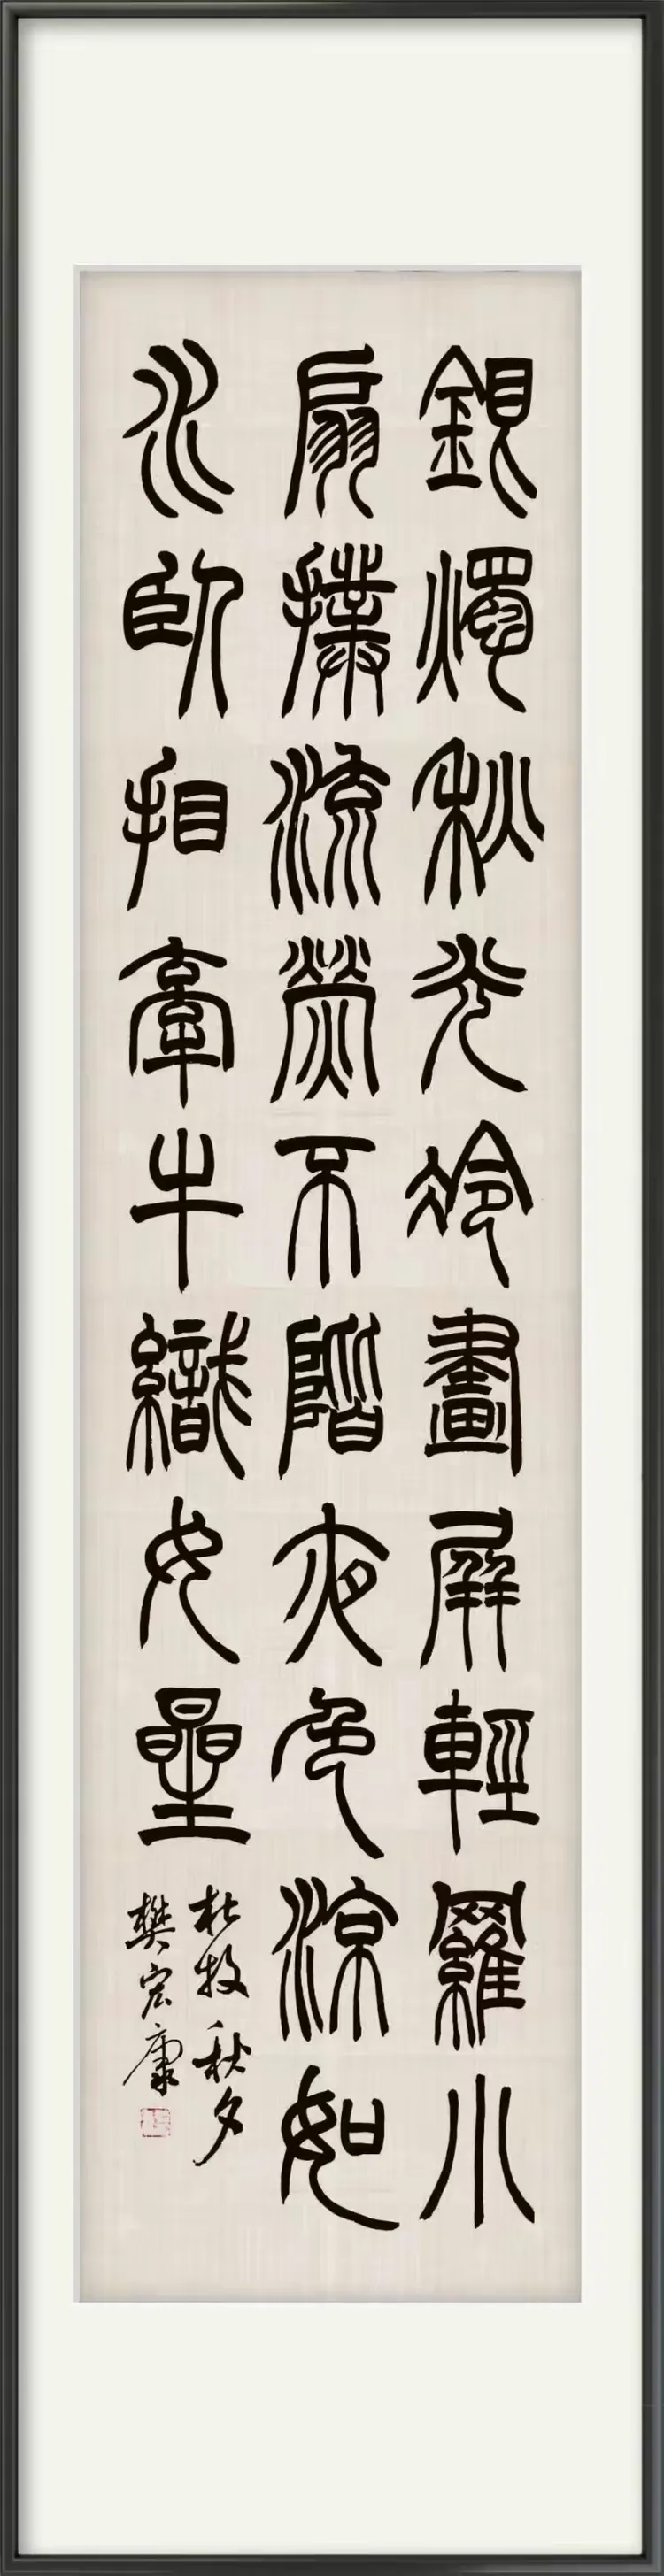 銀燭秋光冷畫屏輕羅小
扇撲流熒不階夜色涼如
水臥看牽牛織女星
杜牧秋夕
樊宏康